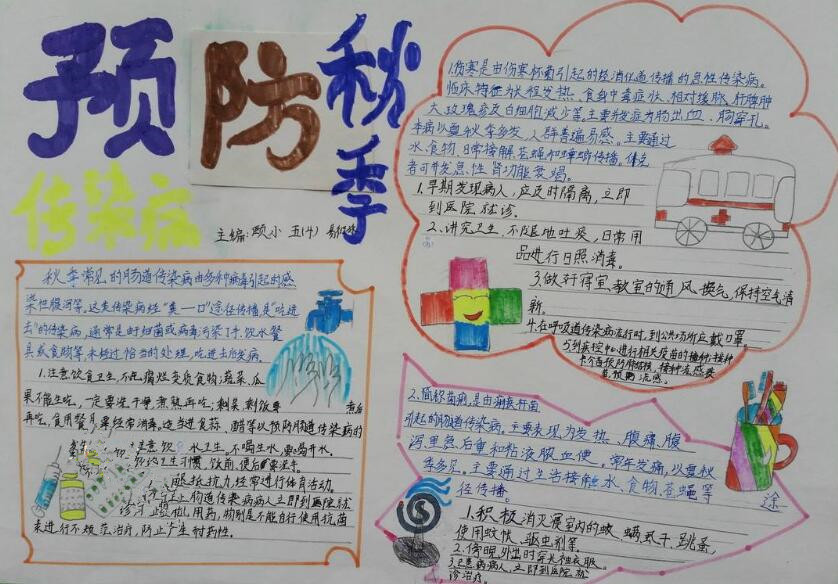 预防秋季
传染病
主编:顾小 五(4)
秋季常见的肠道传染病由多种病毒引起的感
染性腹泻等。这类传染病经“粪—口”途径传播是“吃进
去”的传染病,通常是由细菌或病毒污染了手、饮水餐
具或食物等,未经过恰当的处理,吃进去后发病。
1.注意饮食卫生,不吃腐烂变质食物;蔬菜、瓜
果不能生吃,一定要洗干净,煮熟再吃;剩菜剩饭要 煮后
再吃,食用餐具要经常消毒,适当进食蒜、醋等以预防肠道传染病的
注意饮 水卫生,不喝生水,要喝开水。
卫生习惯,饭前,便后要洗手。
抵抗力,经常进行体育活动。
肠道传染病病人立即到医院就
诊 用药,特别是不能自行使用抗菌
来进行不规范治疗,防止产生耐药性。
1.伤寒是由伤寒杆菌引起的经消化道传播的急性传染病。
临床特征为长程发热、食身中毒症状、相对缓脉、肝脾肿
大、玫瑰疹及白细胞减少等。主要并发症为肠出血、肠穿孔。
本病以夏秋季多发,人群普遍易感。主要通过
水、食物、日常接触、苍蝇和蟑螂传播。
者可并发急性肾功能衰竭。
1.早期发现病人,应及时隔离,立即
到医院就诊。
2.讲究卫生、不随地吐痰,日常用
品进行日照消毒。
3.做好寝室、教室的通风、换气,保持空气清
新。
4.在呼吸道传染病流行时,到公共场所应戴口罩。
5.到疾控中心进行相关疫苗的接种;接种
卡介苗预防肺结核,接种流感疫
苗,预防流感。
2.简称菌痢,是由
引起的肠道传染病,主要表现为发热、腹痛、腹
泻里急后重和粘液脓血便。常年发病,以夏秋
季多见。主要通过生活接触、水、食物、苍蝇等 途
径传播。
1.积极消灭寝室内的蚊、螨虱子、跳蚤,
使用蚊帐、驱虫剂等。
2.傍晚外出时穿长袖衣服。
3.已患病病人,立即到医院就
诊治疗。